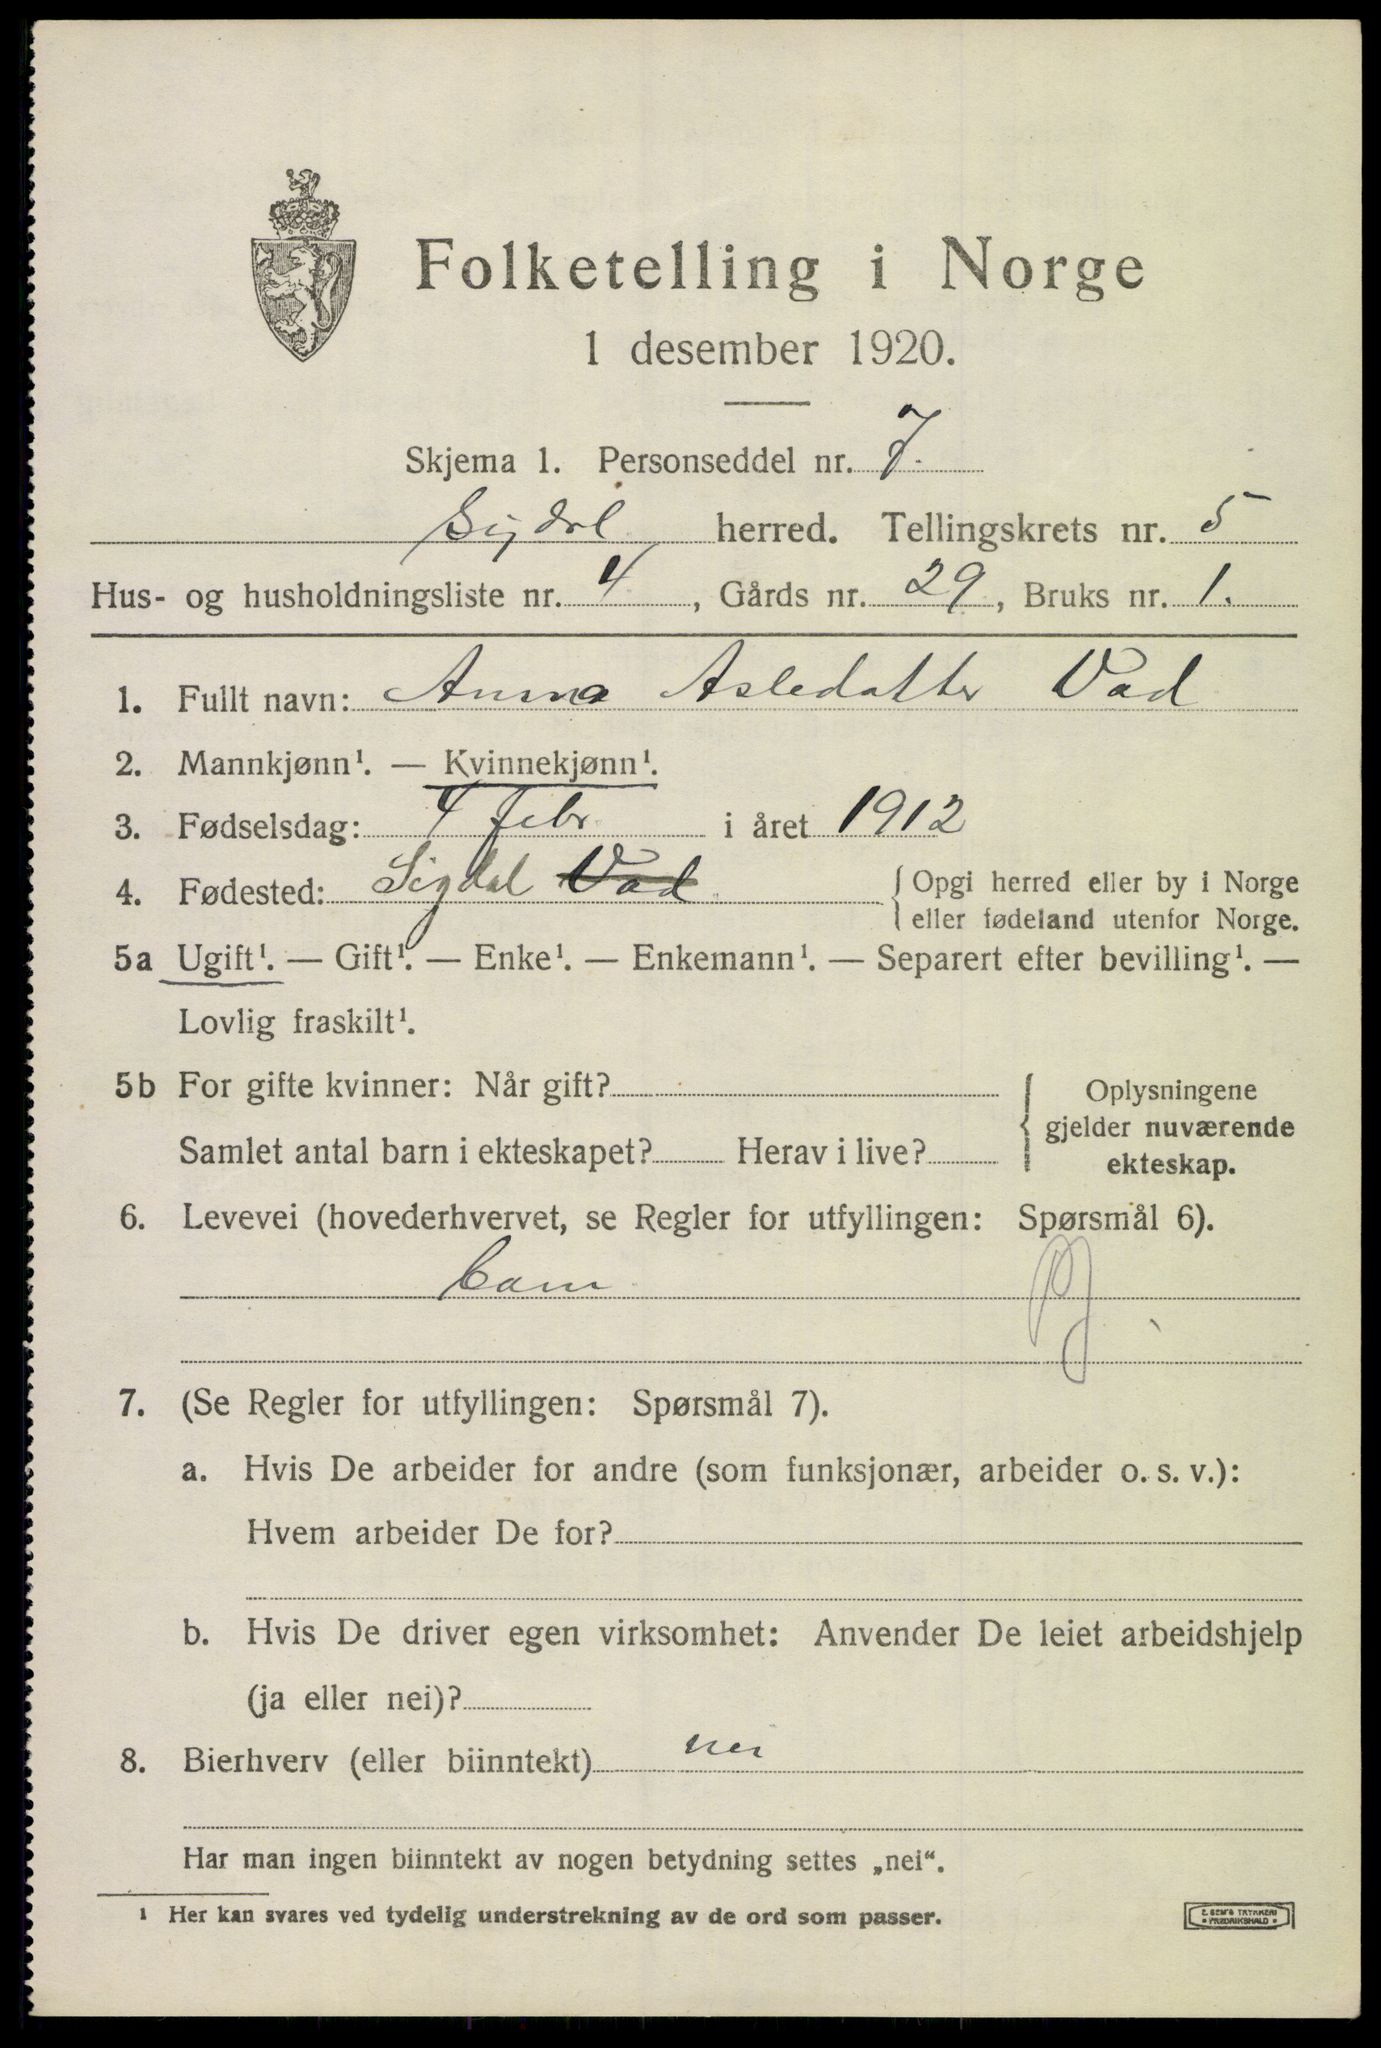 Folketelling i Norge
1 desember 1920.
Skjema 1. Personseddel nr. 7.
Sigdal herred. Tellingskrets nr. 5
Hus- og husholdningsliste nr. 4, Gårds nr. 29, Bruks nr. 1.
1. Fullt navn: Anna Asledatter Vad
2. Mannkjønn¹. — Kvinnekjønn¹.
3. Fødselsdag: 4 febr. i året 1912
4. Fødested: Sigdal Vad { Opgi herred eller by i Norge
eller fødeland utenfor Norge.
5a Ugift¹. — Gift¹. — Enke¹. — Enkemann¹. — Separert efter bevilling¹. —
Lovlig fraskilt¹.
5b For gifte kvinner: Når gift? { Oplysningene
gjelder nuværende
Samlet antal barn i ekteskapet? Herav i live?
ekteskap.
6. Levevei (hovederhvervet, se Regler for utfyllingen: Spørsmål 6).
barn
7. (Se Regler for utfyllingen: Spørsmål 7).
a. Hvis De arbeider for andre (som funksjonær, arbeider o. s. v.):
Hvem arbeider De for?
b. Hvis De driver egen virksomhet: Anvender De leiet arbeidshjelp
(ja eller nei)?
8. Bierhverv (eller biinntekt) nei
Har man ingen biinntekt av nogen betydning settes „nei“.
¹ Her kan svares ved tydelig understrekning av de ord som passer.
E. SEM'S TRYKKERI
• FREDRIKSHALD •